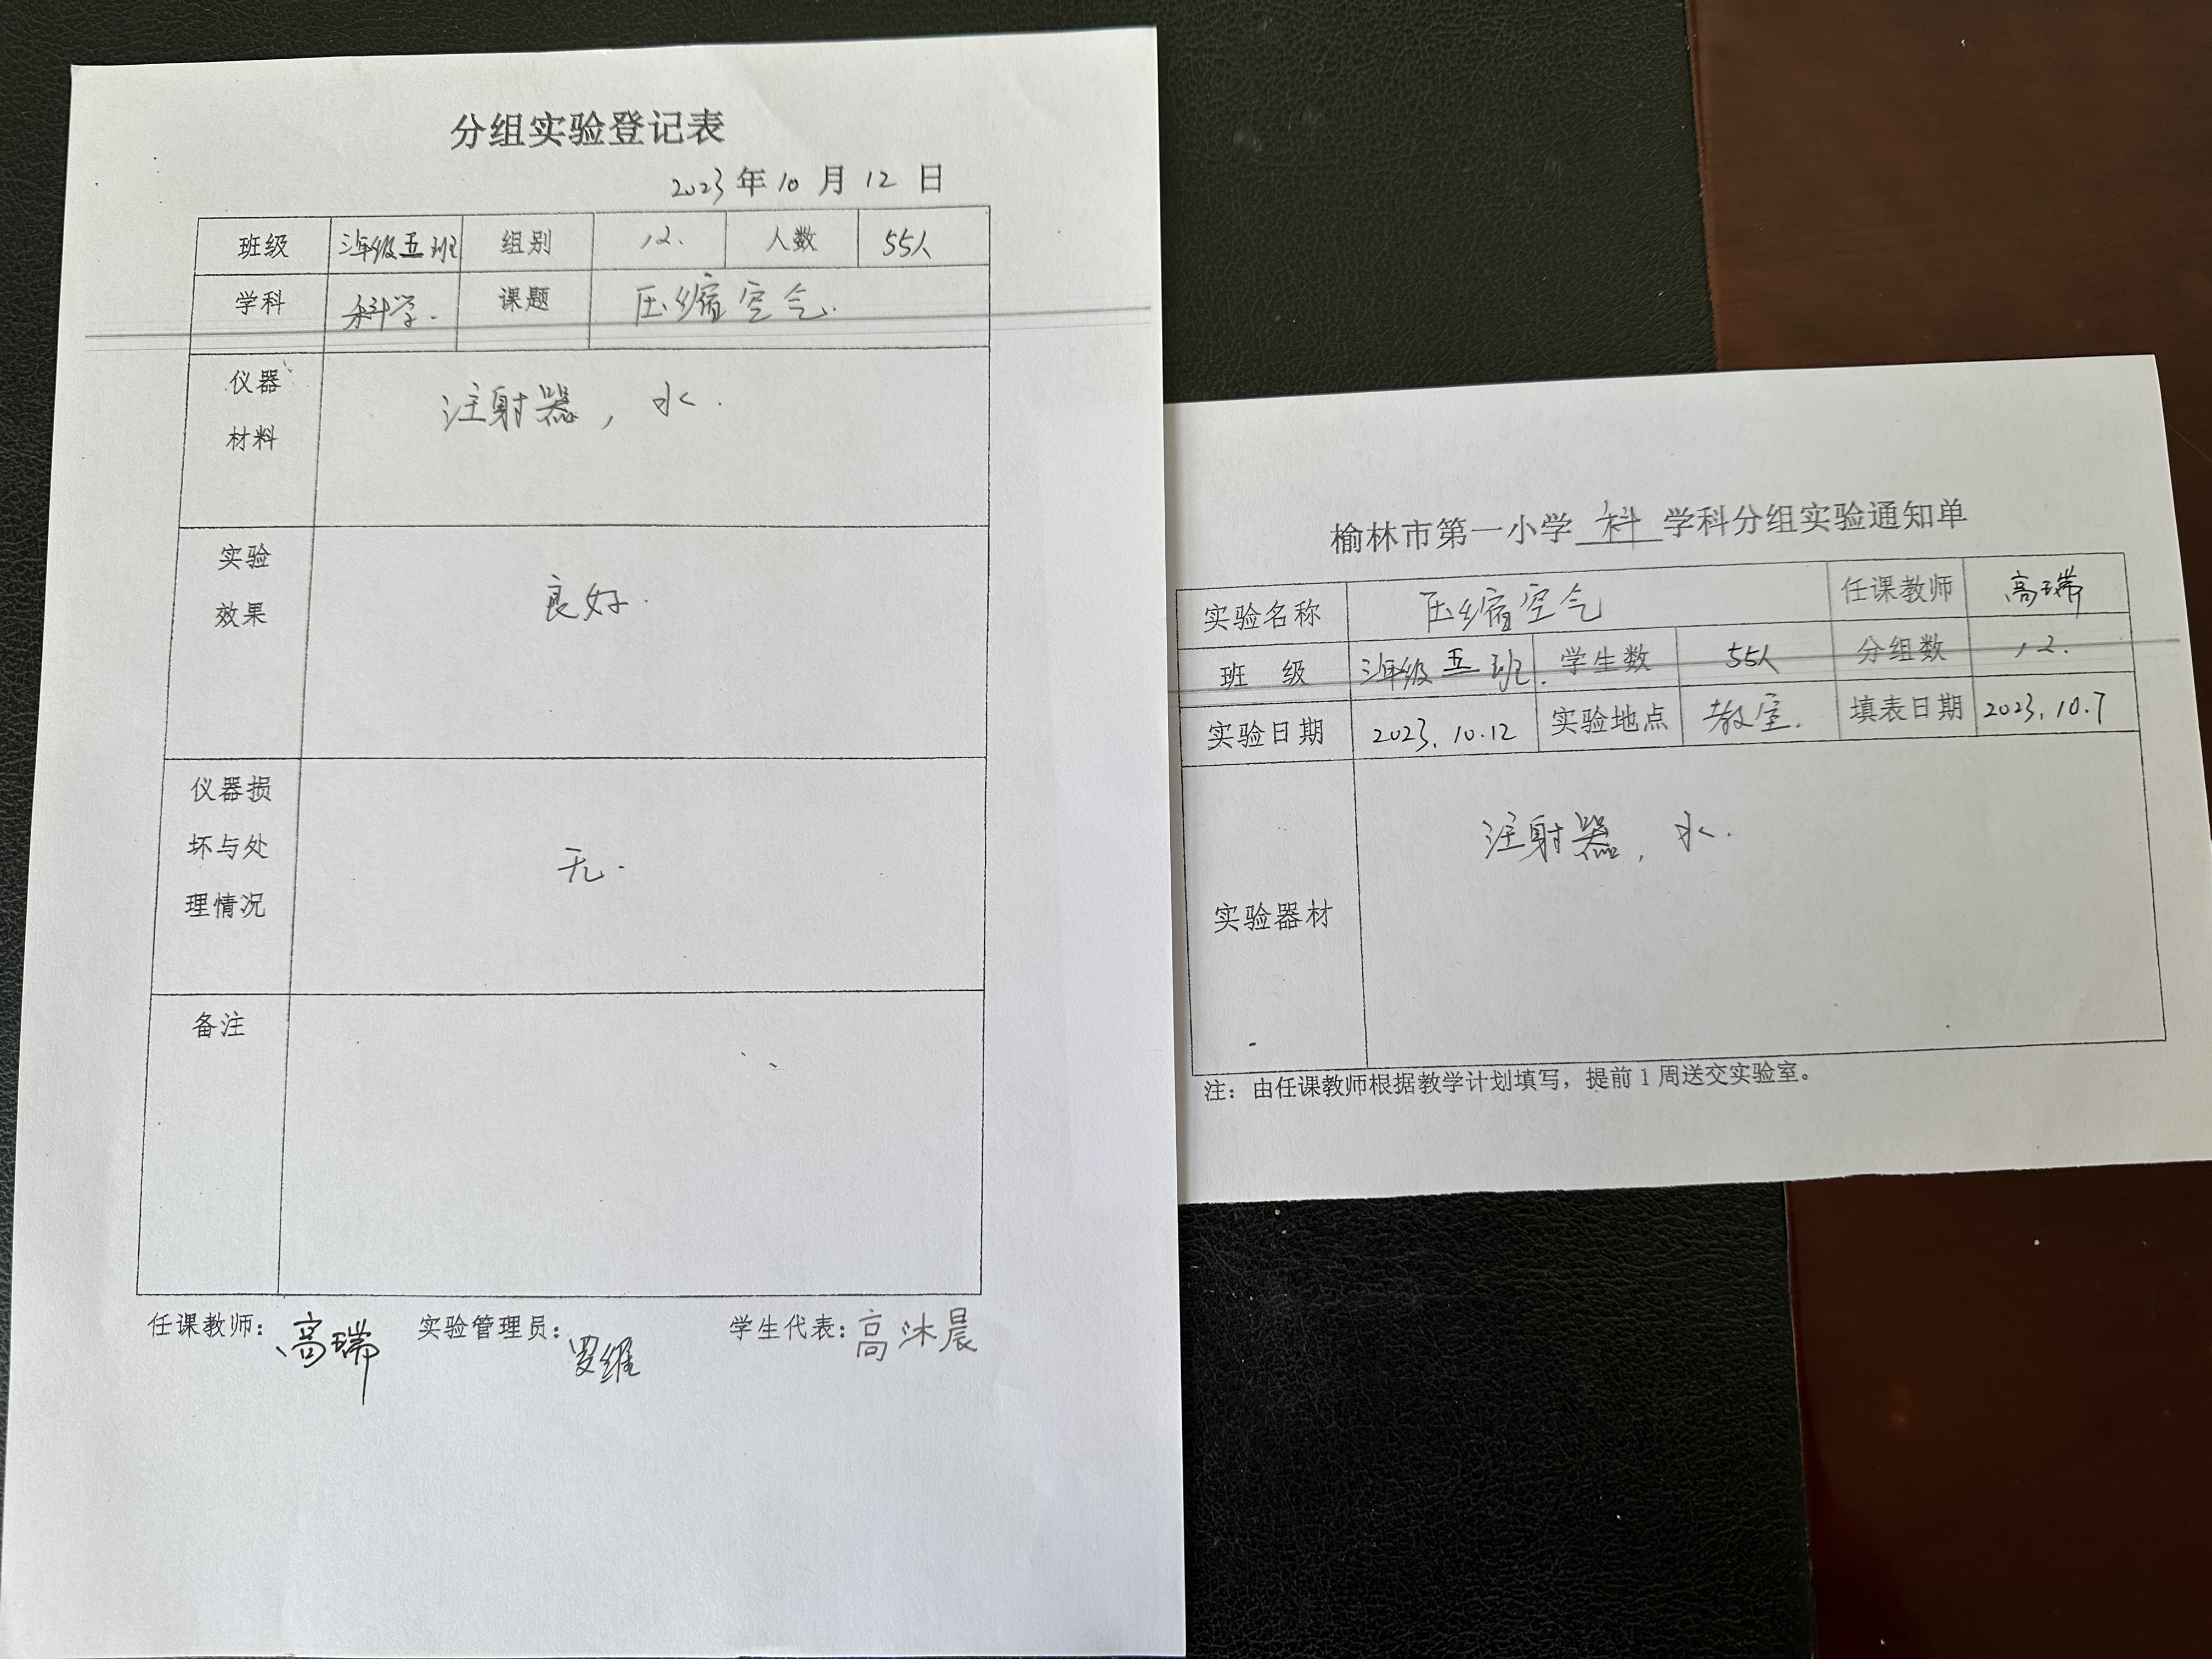 分组实验登记表
2023年10月12日
班级 三年级五班 组别 12. 人数 55人
学科 科学. 课题 压缩空气.
仪器
材料
注射器, 水.
实验
效果
良好.
仪器损
坏与处
理情况
无.
备注
任课教师: 高瑞 实验管理员: 罗维 学生代表: 高沐晨
榆林市第一小学 科 学科分组实验通知单
实验名称 压缩空气 任课教师 高瑞
班 级 三年级五班. 学生数 55人 分组数 12.
实验日期 2023.10.12 实验地点 教室. 填表日期 2023.10.7
实验器材 注射器, 水.
注: 由任课教师根据教学计划填写, 提前1周送交实验室。